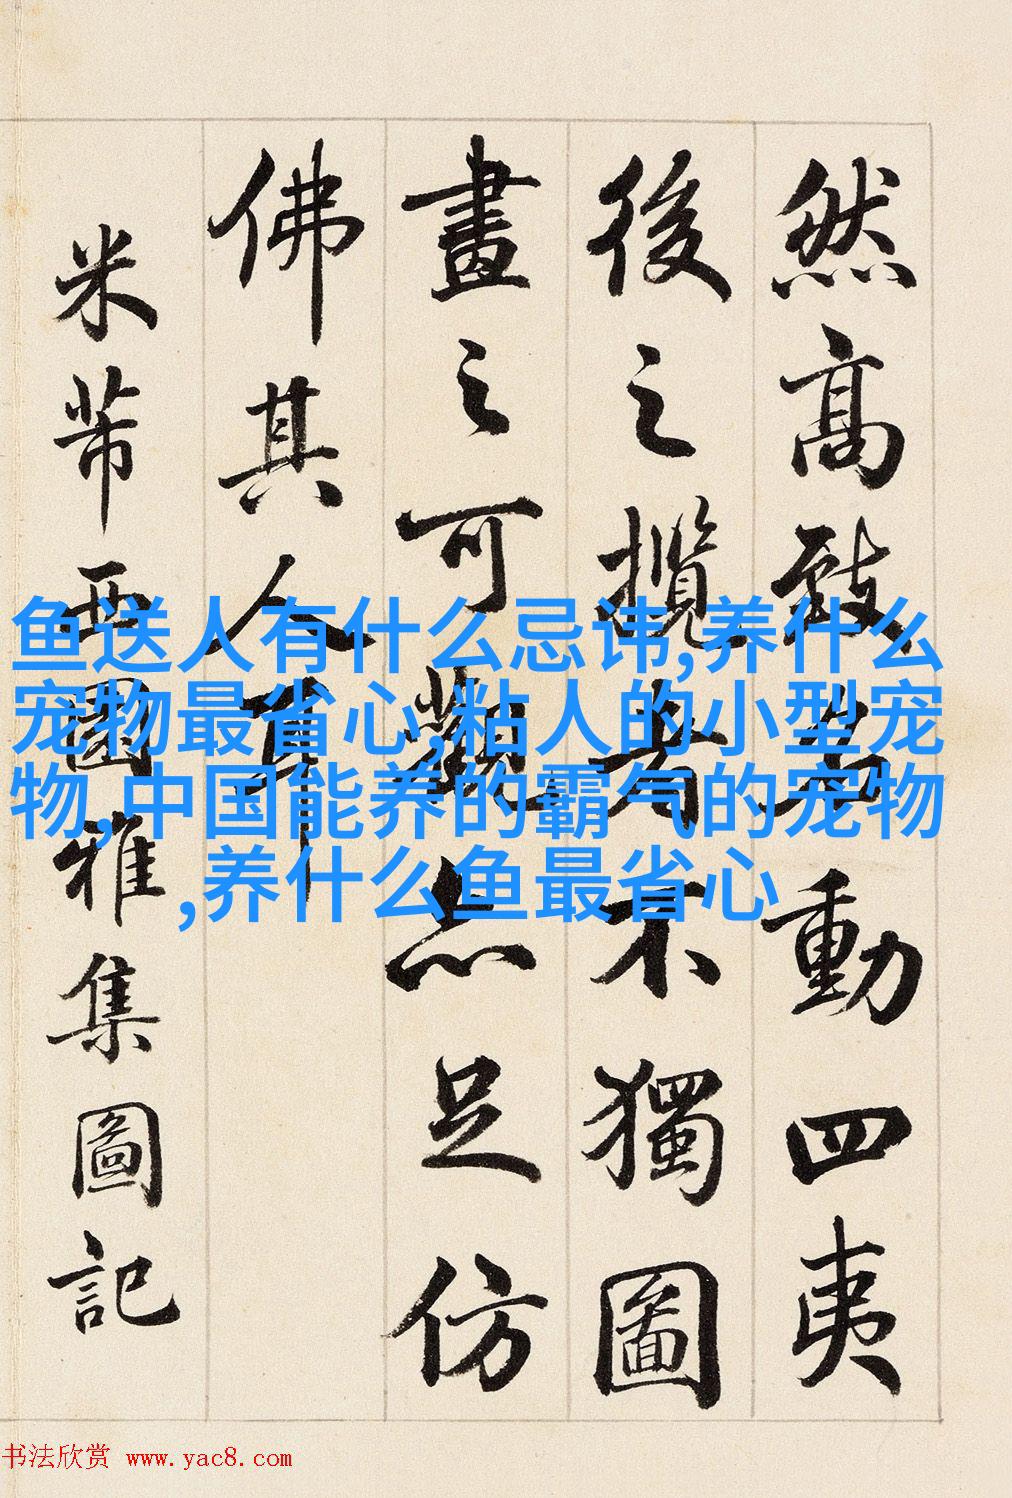 然高致名動四夷
後之攬者不獨圖
畫之可觀亦足仿
佛其人耳
米芾西園雅集圖記
鱼送人有什么忌讳,养什么
宠物最省心,粘人的小型宠
物,中国能养的霸气的宠物
,养什么鱼最省心
书法欣赏 www.yac8.com